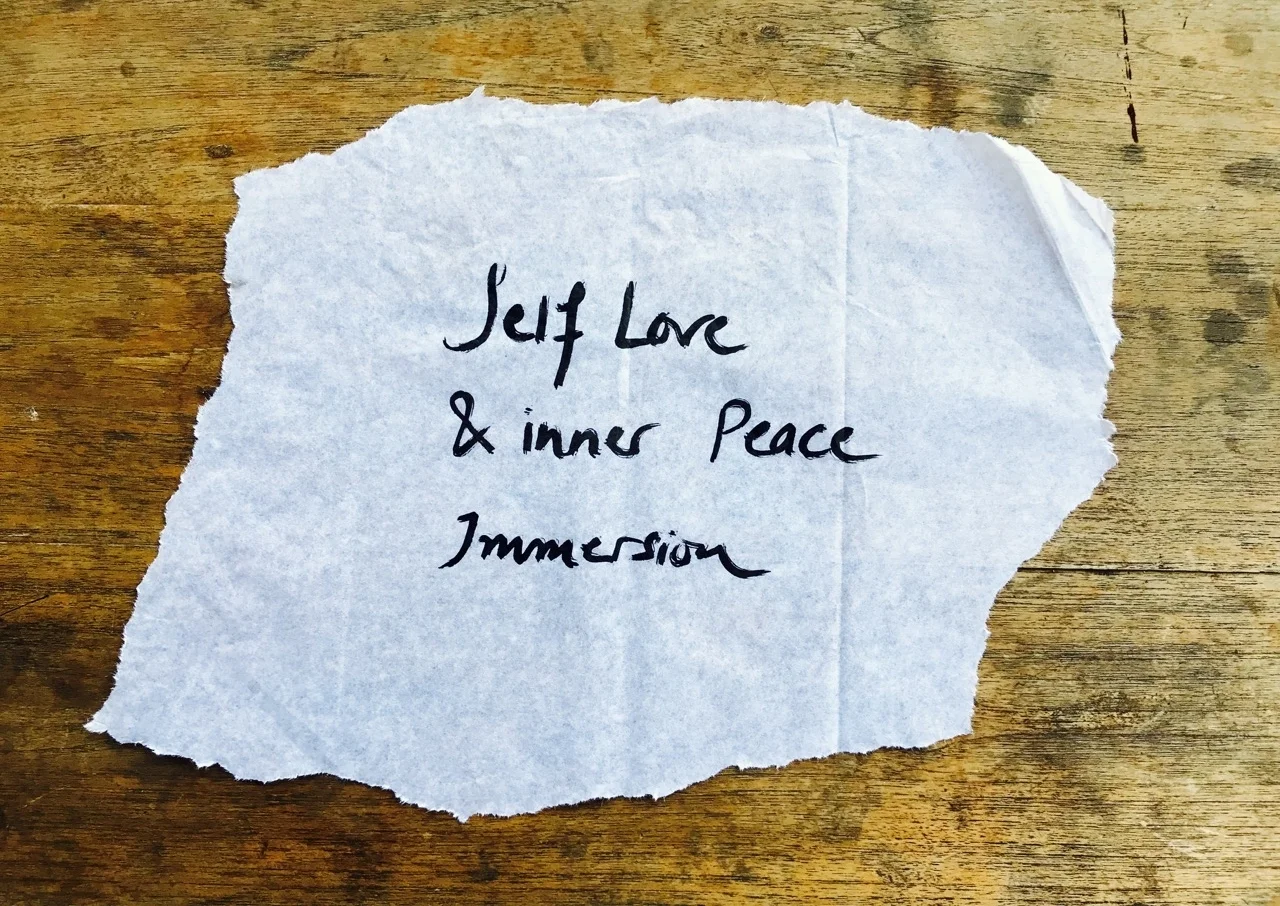 Self Love
& inner Peace
Immersion